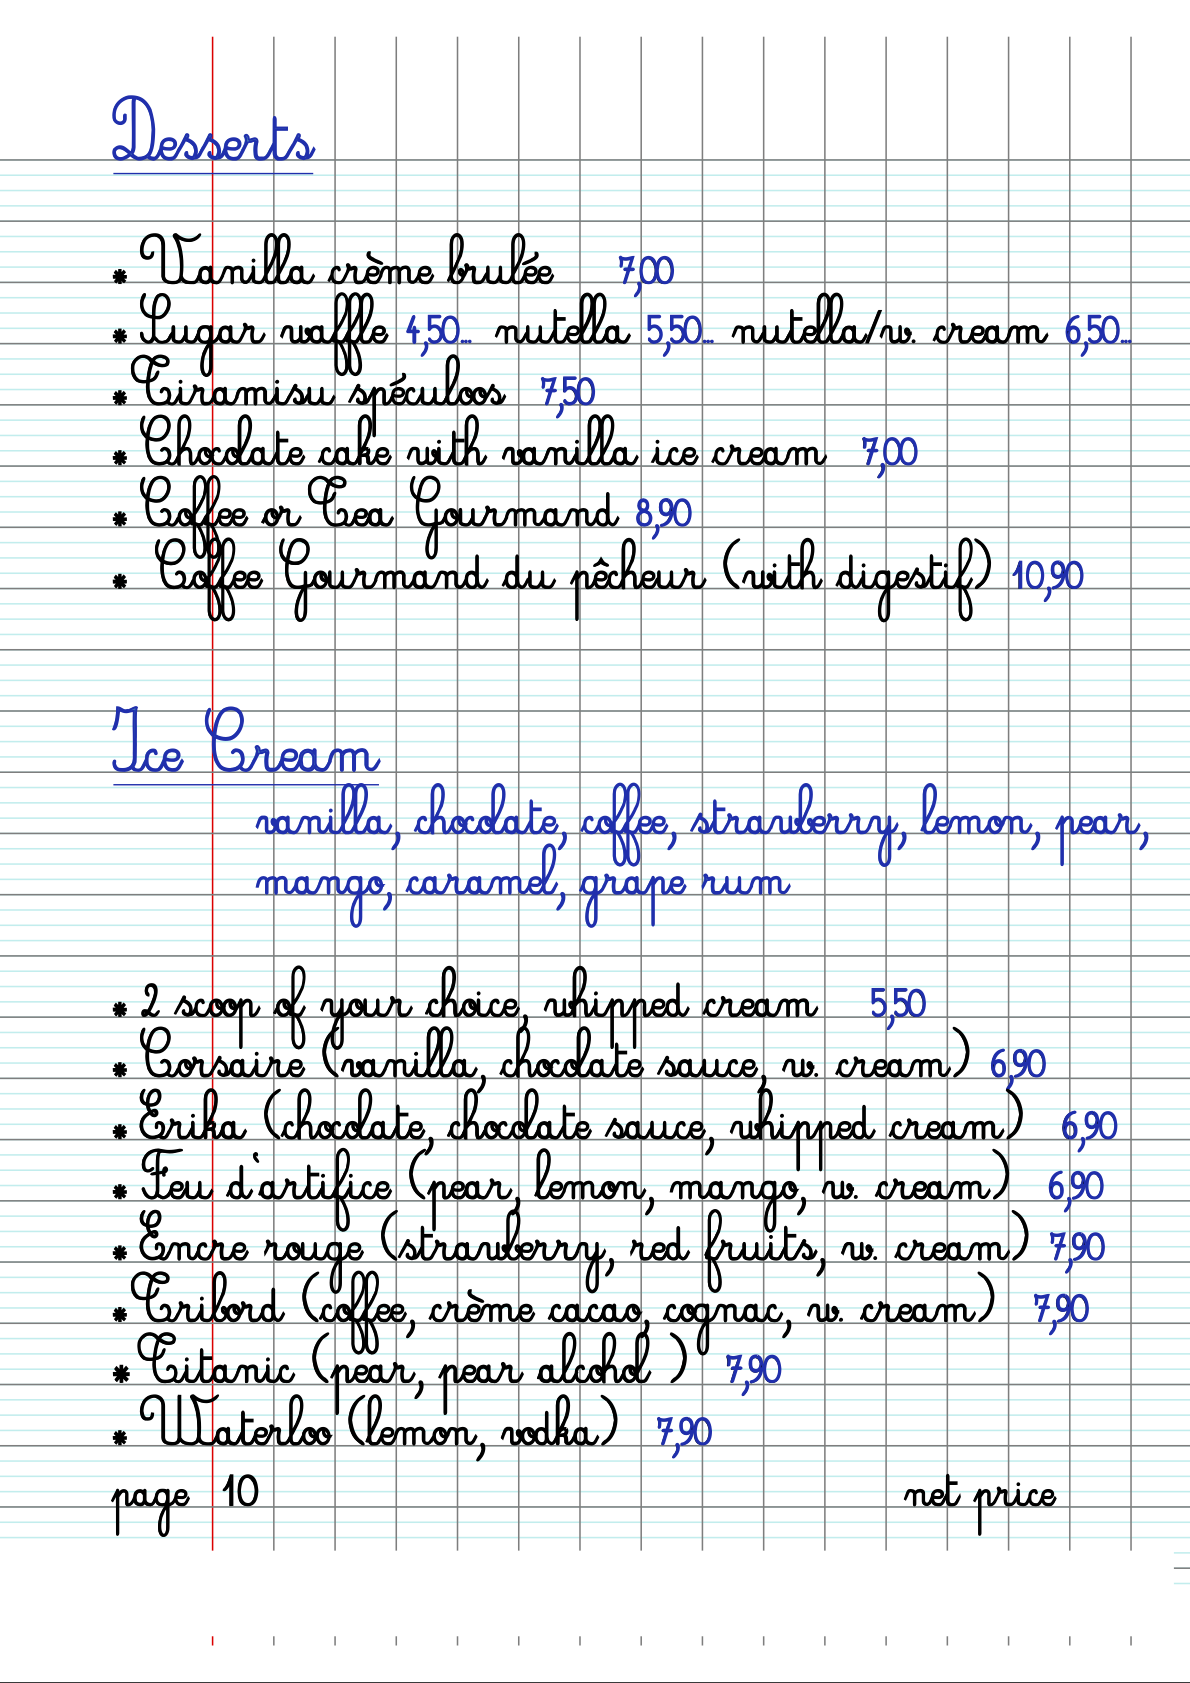 Desserts
* Vanilla crème brulée 7,00
* Sugar waffle 4,50... nutella 5,50... nutella/w. cream 6,50...
* Tiramisu spéculoos 7,50
* Chocolate cake with vanilla ice cream 7,00
* Coffee or Tea Gourmand 8,90
* Coffee Gourmand du pêcheur (with digestif) 10,90
Ice Cream
vanilla, chocolate, coffee, strawberry, lemon, pear,
mango, caramel, grape rum
* 2 scoop of your choice, whipped cream 5,50
* Corsaire (vanilla, chocolate sauce, w. cream) 6,90
* Erika (chocolate, chocolate sauce, whipped cream) 6,90
* Feu d‘artifice (pear, lemon, mango, w. cream) 6,90
* Encre rouge (strawberry, red fruits, w. cream) 7,90
* Tribord (coffee, crème cacao, cognac, w. cream) 7,90
* Titanic (pear, pear alcohol ) 7,90
* Waterloo (lemon, vodka) 7,90
page 10 net price